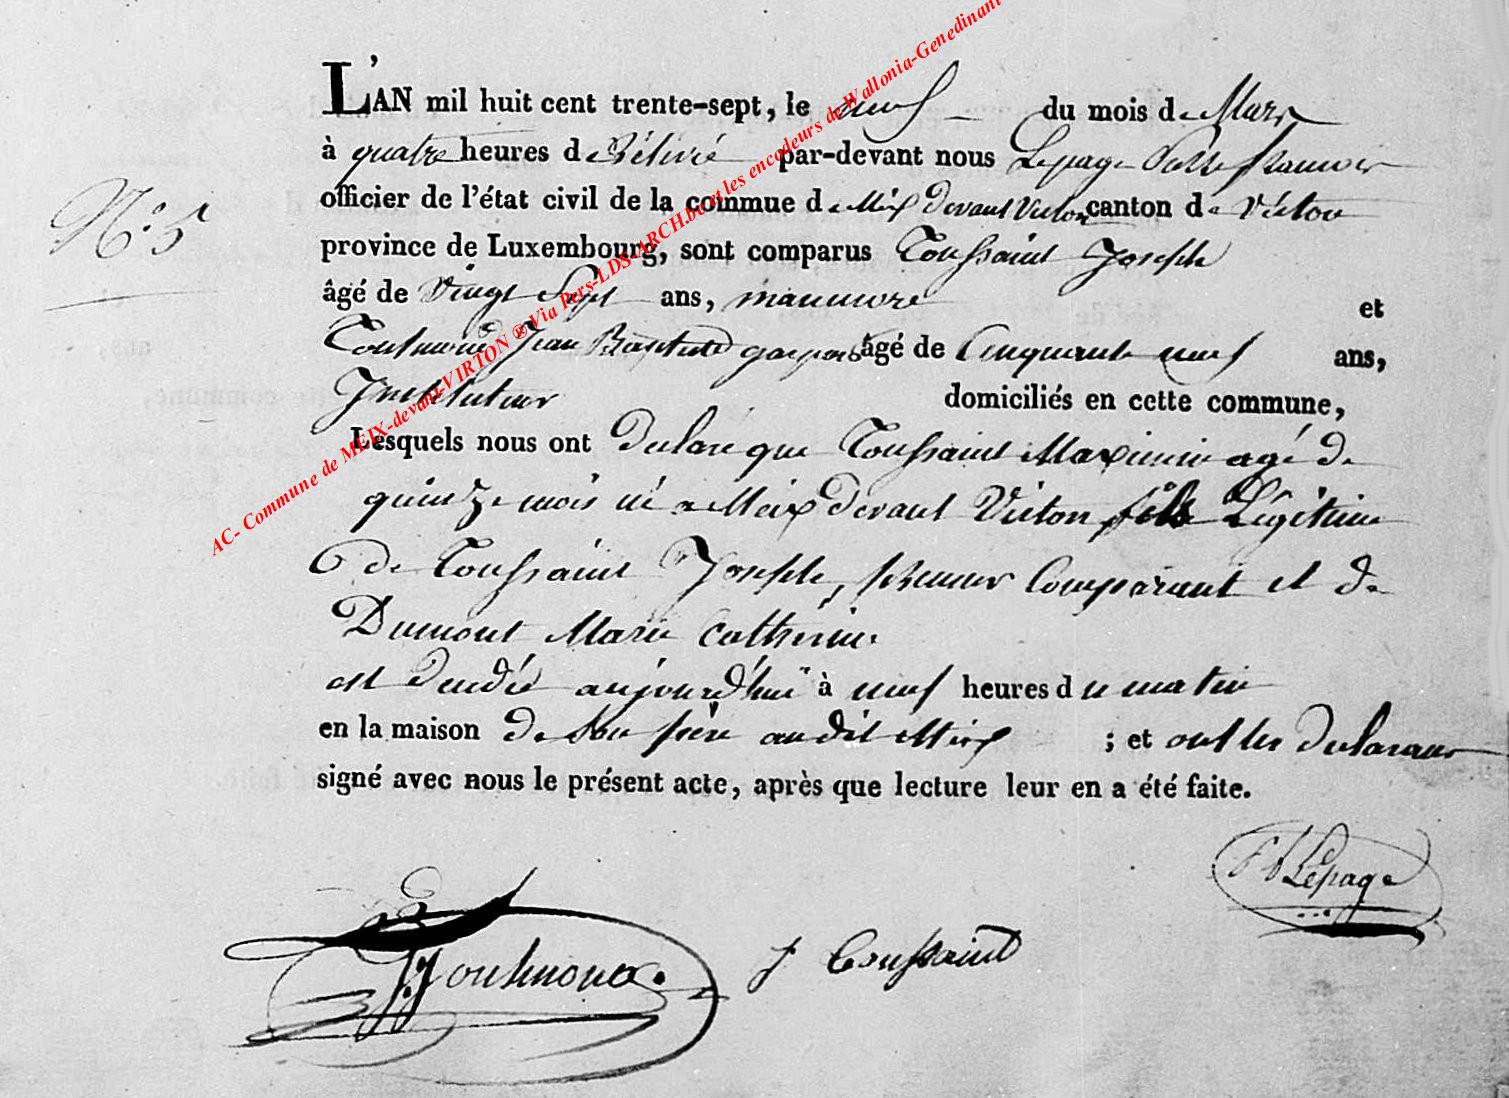 L'AN mil huit cent trente-sept, le neuf du mois de Mars
à quatre heures de rélivé par-devant nous Lepage
officier de l'état civil de la commue de Meix devant Virton canton de Virton
N.o 5
province de Luxembourg, sont comparus Toussaint Joseph
âgé de vingt Sept ans, manuvre et
Jean Baptiste âgé de Cinquante neuf ans,
Instituteur domiciliés en cette commune,
Lesquels nous ont Déclaré que Toussaint Maximin agé de
quinze mois né a Meix devant Virton fils Légitime
de Toussaint Joseph, premier Comparant et de
Dumont Marie Catherine
est Décédé aujourd'hui à neuf heures du matin
en la maison de son père audit Meix ; et ont les Déclarans
signé avec nous le présent acte, après que lecture leur en a été faite.
Lepage
J Toussaint
AC- Commune de MEIX-devant-VIRTON ® Via Pers-LDS-ARCH.be et les encodeurs de Wallonia-Genedinant